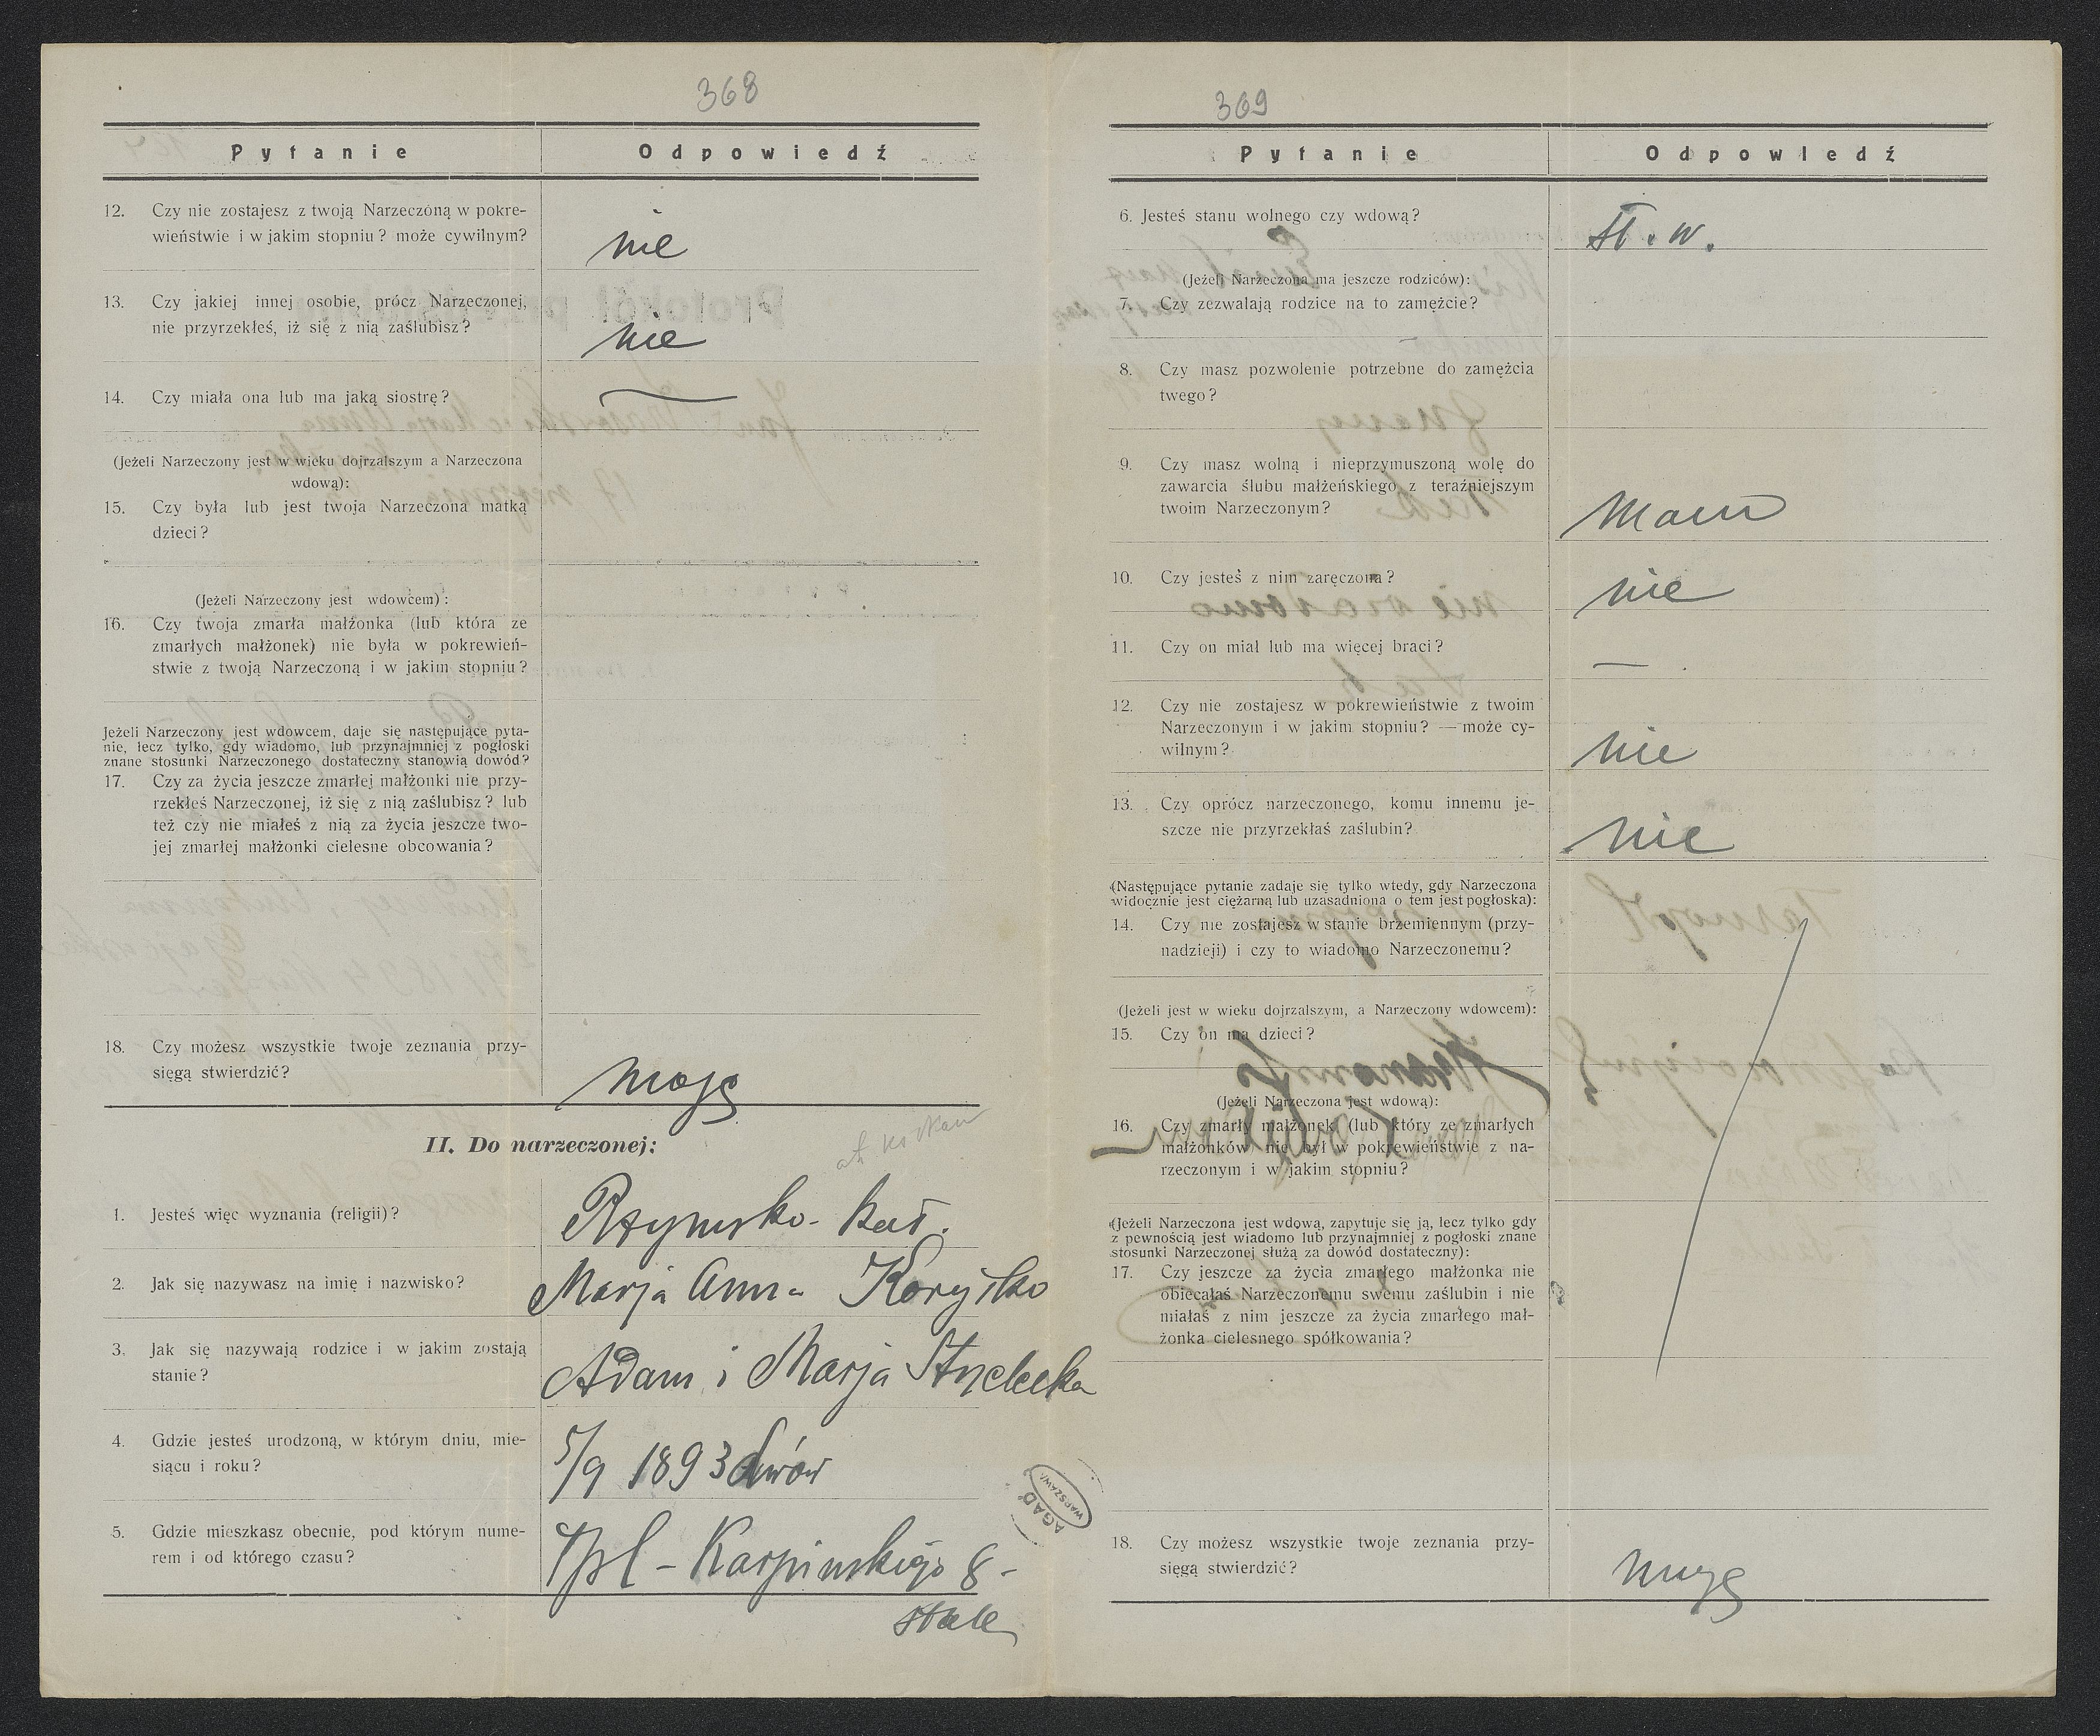 368
Pytanie Odpowiedź
12. Czy nie zostajesz z twoją Narzeczoną w pokre-
wieństwie i w jakim stopniu? może cywilnym?
nie
13. Czy jakiej innej osobie, prócz Narzeczonej,
nie przyrzekłeś, iż się z nią zaślubisz?
nie
14. Czy miała ona lub ma jaką siostrę?
—
(Jeżeli Narzeczony jest w wieku dojrzalszym a Narzeczona
wdową):
15. Czy była lub jest twoja Narzeczona matką
dzieci?
(Jeżeli Narzeczony jest wdowcem):
16. Czy twoja zmarła małżonka (lub która ze
zmarłych małżonek) nie była w pokrewień-
stwie z twoją Narzeczoną i w jakim stopniu?
Jeżeli Narzeczony jest wdowcem, daje się następujące pyta-
nie, lecz tylko, gdy wiadomo, lub przynajmniej z pogłoski
znane stosunki Narzeczonego dostateczny stanowią dowód?
17. Czy za życia jeszcze zmarłej małżonki nie przy-
rzekłeś Narzeczonej, iż się z nią zaślubisz? lub
też czy nie miałeś z nią za życia jeszcze two-
jej zmarłej małżonki cielesne obcowania?
18. Czy możesz wszystkie twoje zeznania przy-
sięgą stwierdzić?
mogę
II. Do narzeczonej:
1. Jesteś więc wyznania (religii)?
Rzymsko-kat.
2. Jak się nazywasz na imię i nazwisko?
Marja Anna Korytko
3. Jak się nazywają rodzice i w jakim zostają
stanie?
Adam i Marja
4. Gdzie jesteś urodzoną, w którym dniu, mie-
siącu i roku?
5/9 1893 Lwów
5. Gdzie mieszkasz obecnie, pod którym nume-
rem i od którego czasu?
Karpinskiego 8 -
stale
369
Pytanie Odpowiedź
6. Jesteś stanu wolnego czy wdową?
st. w.
(Jeżeli Narzeczona ma jeszcze rodziców):
7. Czy zezwalają rodzice na to zamężcie?
8. Czy masz pozwolenie potrzebne do zamężcia
twego?
9. Czy masz wolną i nieprzymuszoną wolę do
zawarcia ślubu małżeńskiego z teraźniejszym
twoim Narzeczonym?
mam
10. Czy jesteś z nim zaręczona?
nie
11. Czy on miał lub ma więcej braci?
—
12. Czy nie zostajesz w pokrewieństwie z twoim
Narzeczonym i w jakim stopniu? — może cy-
wilnym?
nie
13. Czy oprócz narzeczonego, komu innemu je-
szcze nie przyrzekłaś zaślubin?
nie
(Następujące pytanie zadaje się tylko wtedy, gdy Narzeczona
widocznie jest ciężarną lub uzasadniona o tem jest pogłoska):
14. Czy nie zostajesz w stanie brzemiennym (przy-
nadzieji) i czy to wiadomo Narzeczonemu?
(Jeżeli jest w wieku dojrzalszym, a Narzeczony wdowcem):
15. Czy on ma dzieci?
(Jeżeli Narzeczona jest wdową):
16. Czy zmarły małżonek (lub który ze zmarłych
małżonków) nie był w pokrewieństwie z na-
rzeczonym i w jakim stopniu?
(Jeżeli Narzeczona jest wdową, zapytuje się ją, lecz tylko gdy
z pewnością jest wiadomo lub przynajmniej z pogłoski znane
stosunki Narzeczonej służą za dowód dostateczny):
17. Czy jeszcze za życia zmarłego małżonka nie
obiecałaś Narzeczonemu swemu zaślubin i nie
miałaś z nim jeszcze za życia zmarłego mał-
żonka cielesnego spółkowania?
18. Czy możesz wszystkie twoje zeznania przy-
sięgą stwierdzić?
mogę
AGAD
WARSZAWA